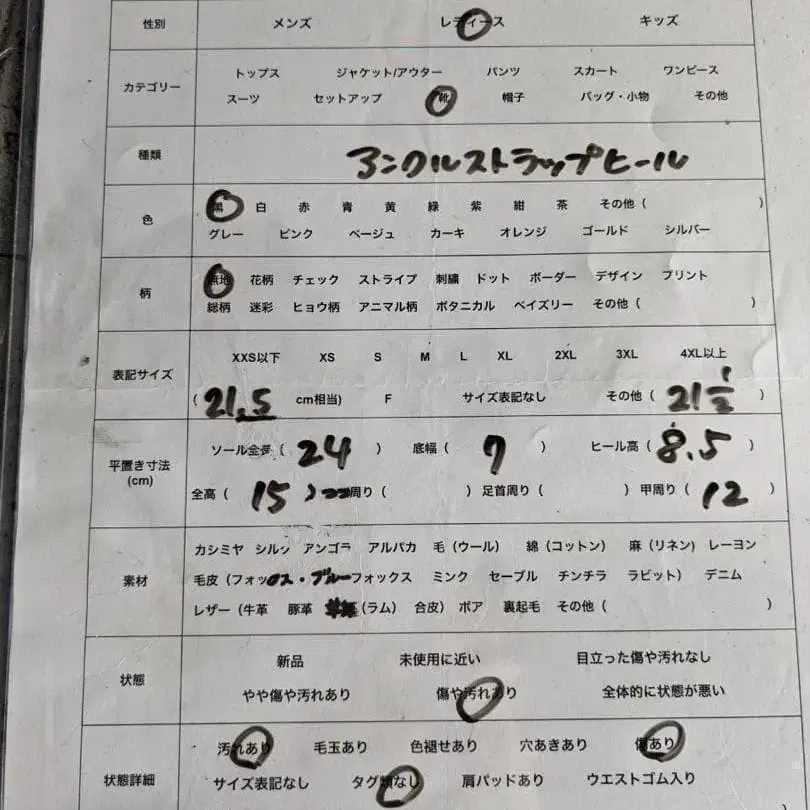 性別 メンズ レディース キッズ
カテゴリー
トップス ジャケット/アウター パンツ スカート ワンピース
スーツ セットアップ 靴 帽子 バッグ・小物 その他
種類 アンクルストラップヒール
色
黒 白 赤 青 黄 緑 紫 紺 茶 その他 ( )
グレー ピンク ベージュ カーキ オレンジ ゴールド シルバー
柄
無地 花柄 チェック ストライプ 刺繍 ドット ボーダー デザイン プリント
総柄 迷彩 ヒョウ柄 アニマル柄 ボタニカル ペイズリー その他 ( )
表記サイズ
XXS以下 XS S M L XL 2XL 3XL 4XL以上
( 21.5 cm相当) F サイズ表記なし その他 ( 21 1/2 )
平置き寸法
(cm)
ソール全長 ( 24 ) 底幅 ( 7 ) ヒール高 ( 8.5 )
全高 ( 15 ) 周り ( ) 足首周り ( ) 甲周り ( 12 )
素材
カシミヤ シルク アンゴラ アルパカ 毛 (ウール) 綿 (コットン) 麻 (リネン) レーヨン
毛皮 (フォックス・ブルーフォックス ミンク セーブル チンチラ ラビット) デニム
レザー (牛革 豚革 (ラム) 合皮) ボア 裏起毛 その他 ( )
状態
新品 未使用に近い 目立った傷や汚れなし
やや傷や汚れあり 傷や汚れあり 全体的に状態が悪い
状態詳細
汚れあり 毛玉あり 色褪せあり 穴あきあり 傷あり
サイズ表記なし タグ類なし 肩パッドあり ウエストゴム入り
)